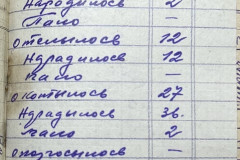 Нарадилось 2
Пало —
отелылось 12
Нарадилось 12
Пало —
окотылось 27
Нарадылось 36.
Пало 2
опоросылось —